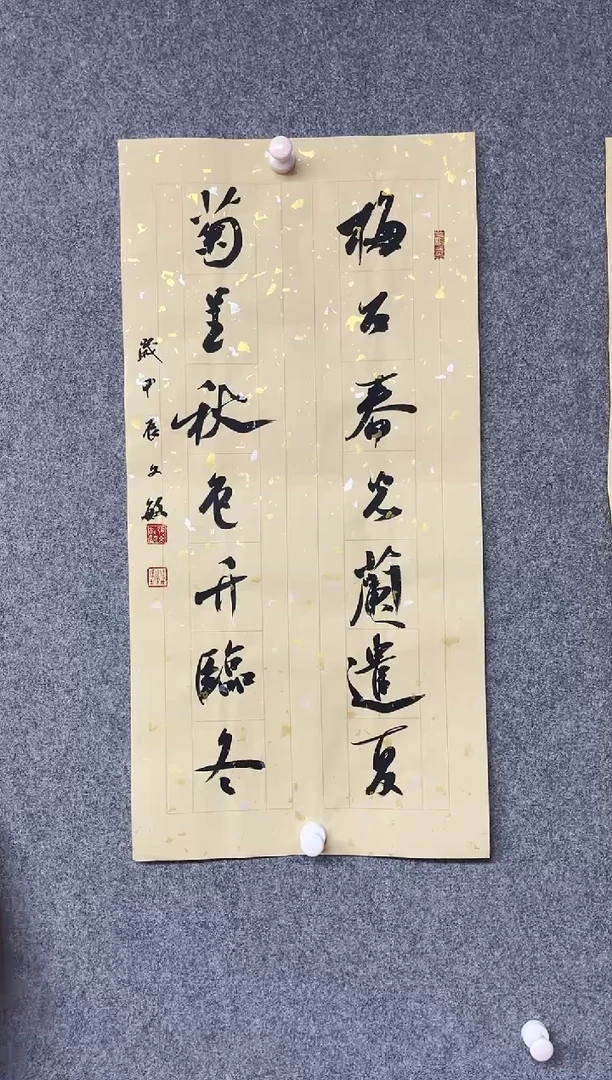 梅占春光蘭遣夏
菊秋色竹臨冬
歲甲辰文敏